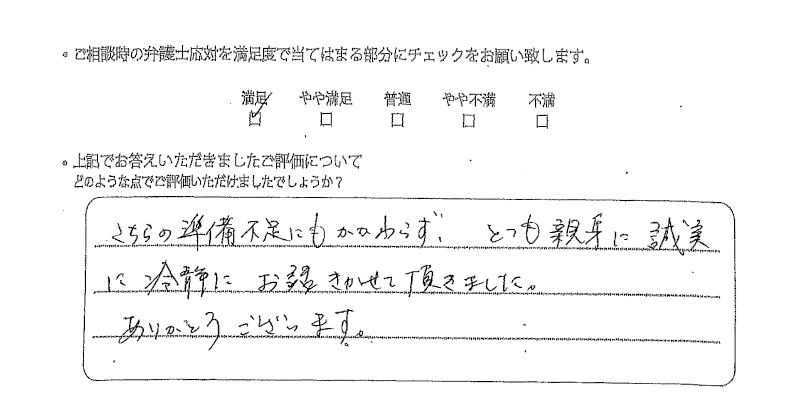 。ご相談時の弁護士応対を満足度で当てはまる部分にチェックをお願い致します。
満足 やや満足 普通 やや不満 不満
☑ □ □ □ □
。上記でお答えいただきましたご評価について
どのような点でご評価いただけましたでしょうか？
こちらの準備不足にもかかわらず、とても親身に誠実
に冷静にお話きかせて頂きました。
ありがとうございます。